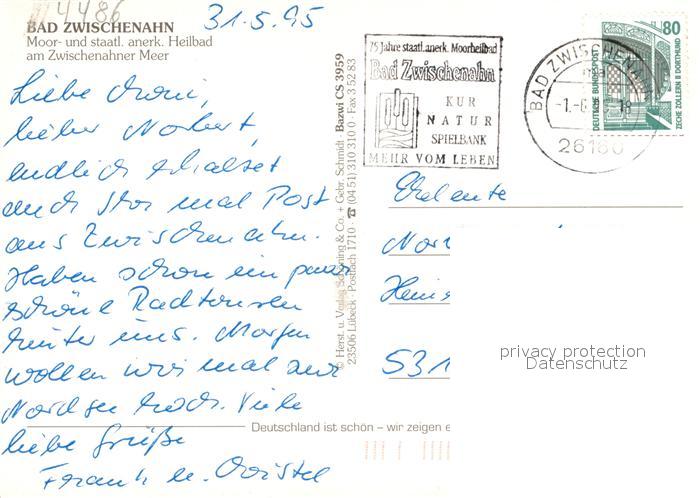 4486
31.5.95
BAD ZWISCHENAHN
Moor- und staatl. anerk. Heilbad
am Zwischenahner Meer
Liebe
lieber Norbert,
endlich erhaltet
auch Ihr mal Post
aus Zwischenahn.
Haben schon ein paar
schöne Radtouren
hinter uns. Morgen
wollen wir mal zur
Nordsee hoch. Viele
liebe Grüße
Frank u. Christel
© Herst. u. Verlag Schöning & Co. + Gebr. Schmidt · Bazwi CS 3959
23506 Lübeck · Postfach 1710 · ☎ (04 51) 310 310 0 · Fax 3 52 83
75 Jahre staatl. anerk. Moorheilbad
Bad Zwischenahn
KUR
NATUR
SPIELBANK
MEHR VOM LEBEN
BAD ZWISCHENAHN
-1.-6. -18
26160
80
DEUTSCHE BUNDESPOST
ZECHE ZOLLERN II DORTMUND
Nor
S31
privacy protection
Datenschutz
Deutschland ist schön – wir zeigen e